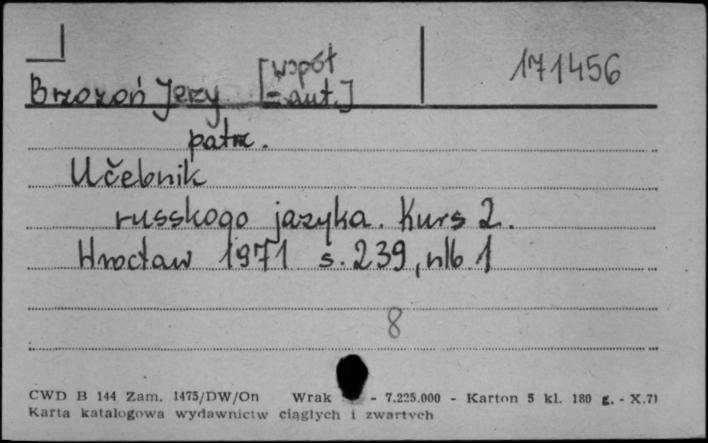 [współ 171456
Brzozoń Jerzy = aut.]
patrz.
Učebnik
russkogo jazyka. Kurs 2.
Wrocław 1971 s. 239, nlb. 1
8
CWD B 144 Zam. 1475/DW/On Wrak - 7.225.000 - Karton 5 kl. 180 g. - X.71
Karta katalogowa wydawnictw ciągłych i zwartych